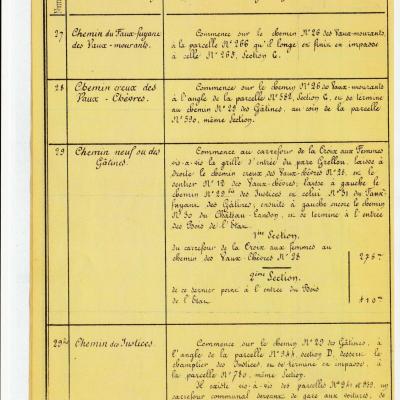 27
Chemin du Faux-fuyant
des Vaux-mourants.
Commence sur le chemin N°26 des Vaux-mourants
à la parcelle N°266 qu'il longe et finit en impasse
à celle N°263, Section C.
28
Chemin creux des
Vaux-Chèvres.
Commence sur le chemin N°26 des Vaux-mourants
à l'angle de la parcelle N°582, Section C, et se termine
au chemin N°29 des Gâtines, au coin de la parcelle
N°590, même Section.
29
Chemin neuf ou des
Gâtines.
Commence au carrefour de la Croix aux Femmes
vis-à-vis la grille d'entrée du parc Grellou, laisse à
droite le chemin creux des Vaux-chèvres N°28, et le
sentier N°12 des Vaux-chèvres, laisse à gauche le
chemin N°29 bis des Justices et celui N°31 du Faux-
fuyant des Gâtines, ensuite à gauche encore le chemin
N°30 du Château-Landon, et se termine à l'entrée
des Bois de l'Etat.
1ère Section.
du carrefour de la Croix aux femmes au
chemin des Vaux-Chèvres N°28
276m
2ème Section.
de ce dernier point à l'entrée du Bois
de l'Etat
410m
29bis
Chemin des Justices.
Commence sur le chemin N°29 des Gâtines, à
l'angle de la parcelle N°944, section D, dessert le
champtier des Justices, et se termine en impasse, à
la parcelle N°780, même Section.
Il existe vis-à-vis des parcelles N°941 et 939, un
carrefour communal servant de gare aux voitures, de